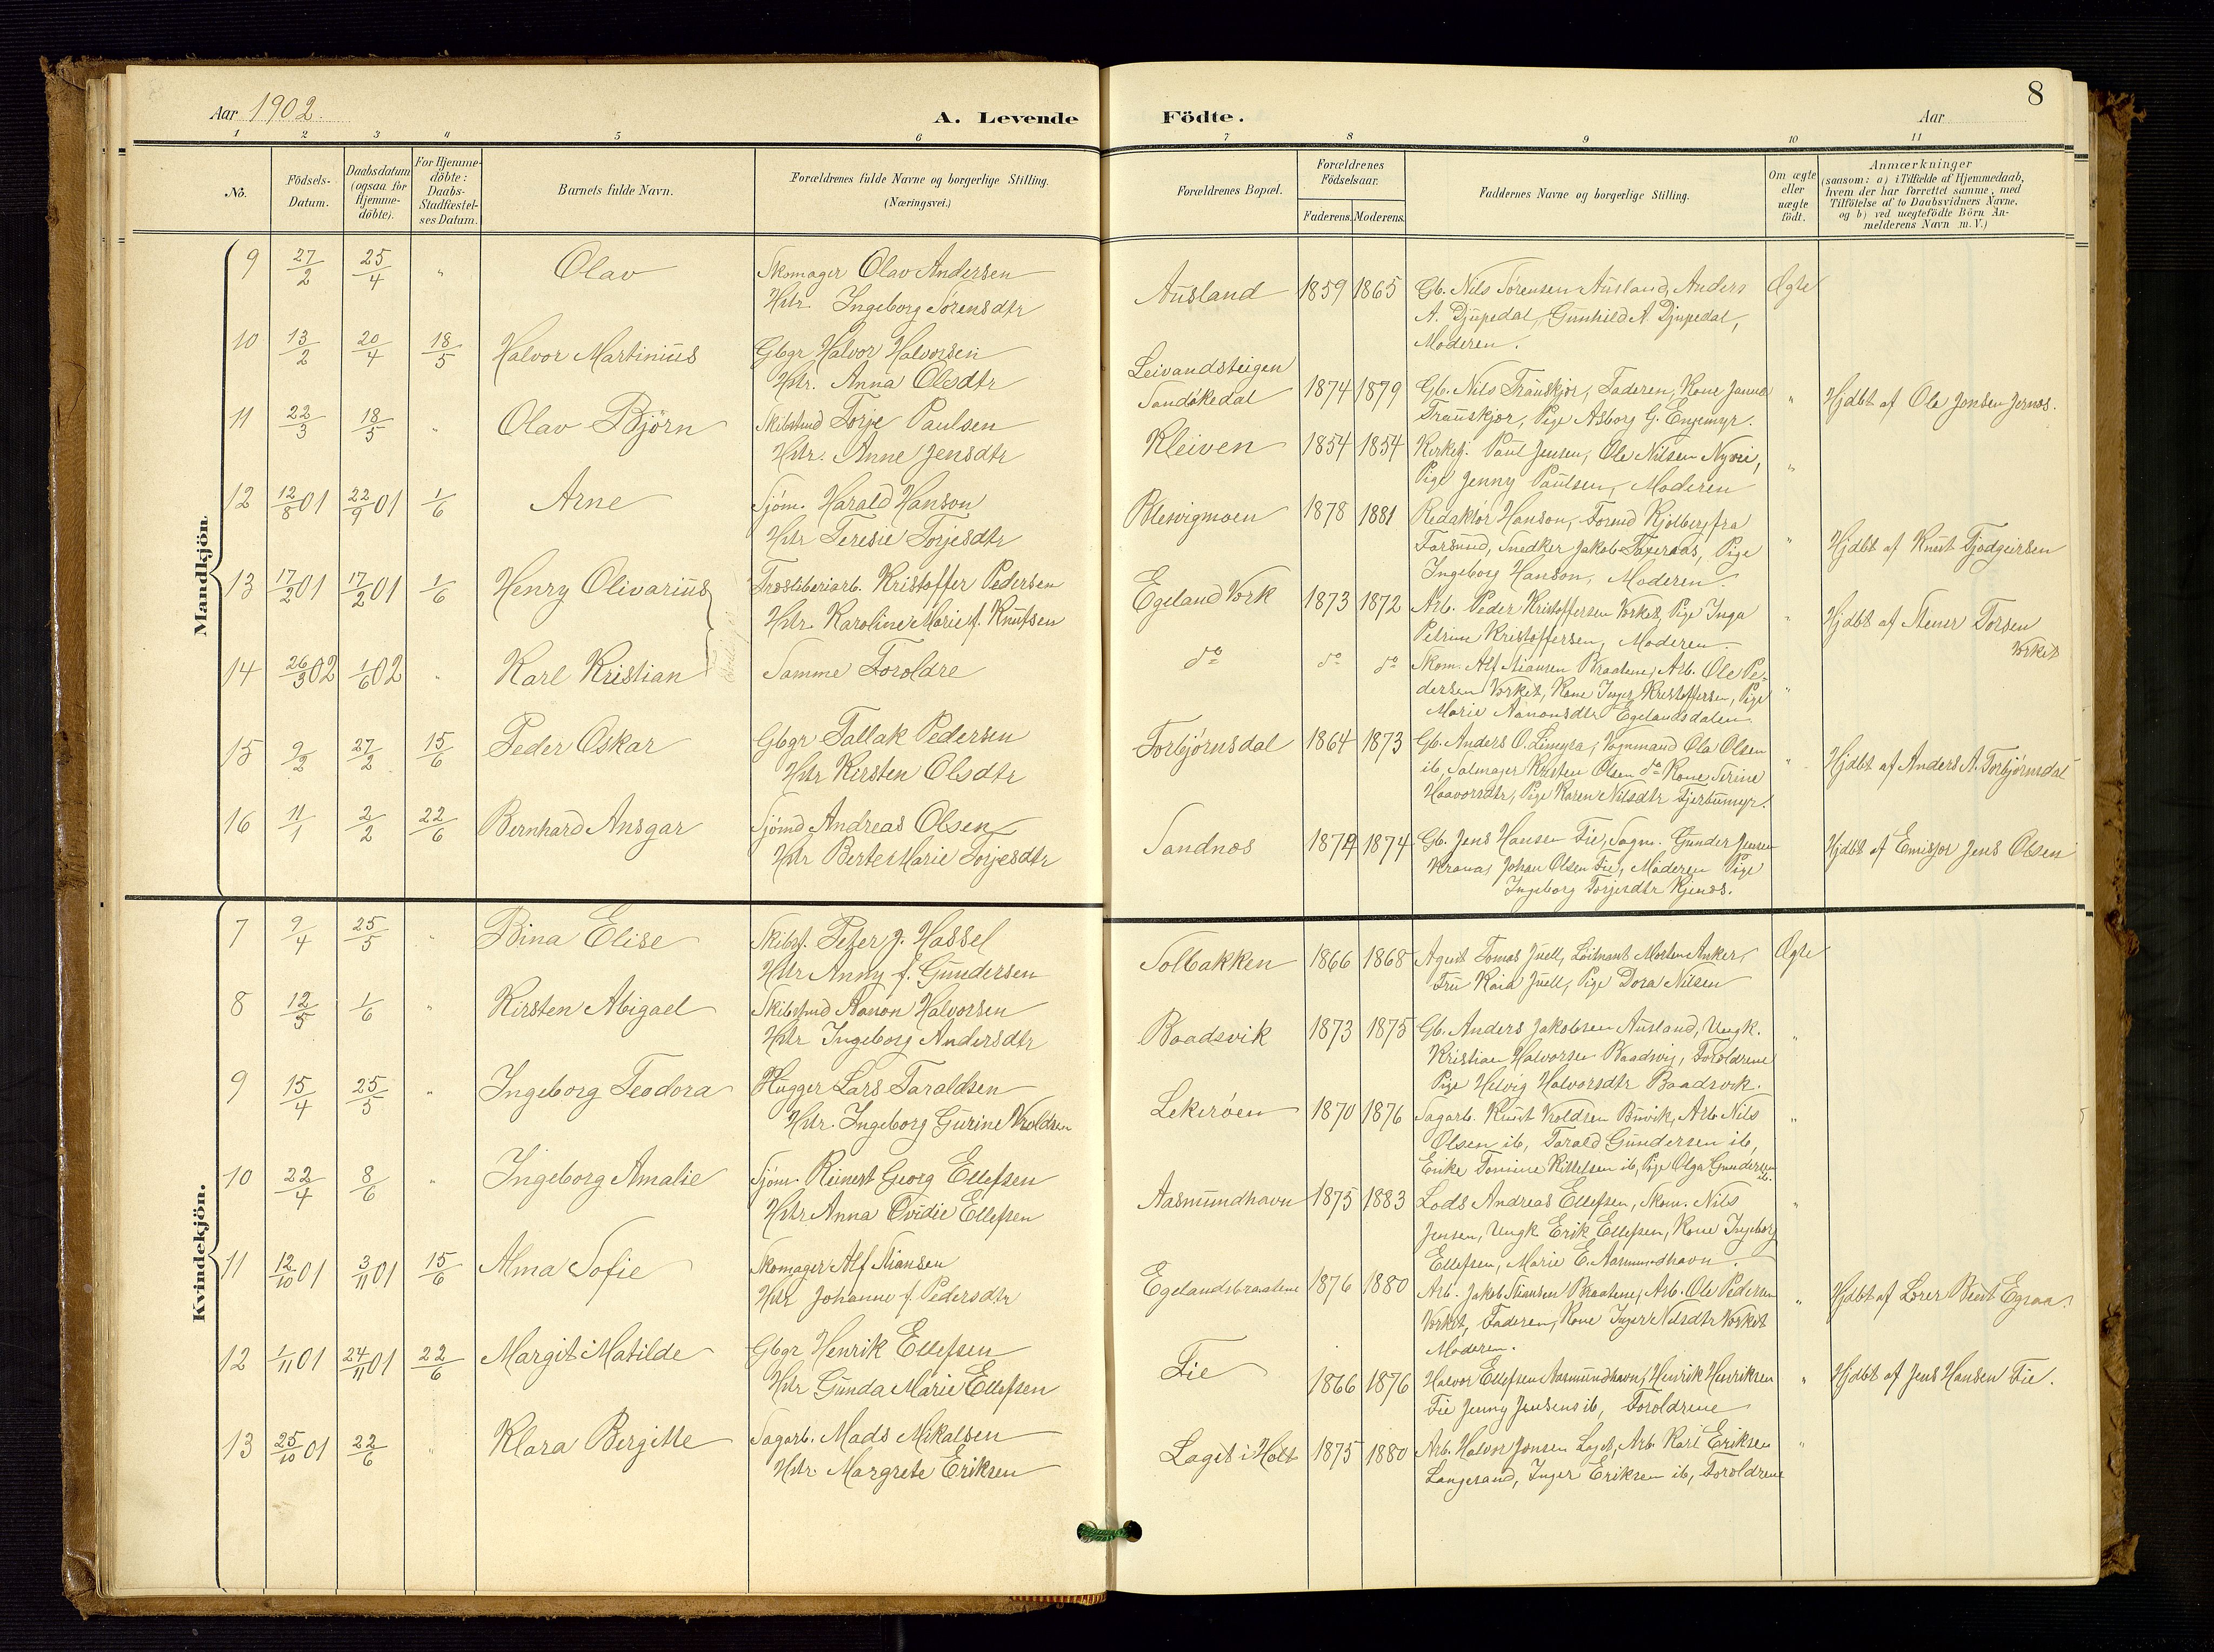 Aar 1902.
A. Levende
1 2 3 4 5 6
No.
Födsels-
Datum.
Daabsdatum
(ogsaa for
Hjemme-
döbte).
For Hjemme-
döbte:
Daabs-
Stadfæstel-
ses Datum.
Barnets fulde Navn.
Forældrenes fulde Navne og borgerlige Stilling.
(Næringsvei.)
Mandkjön.
9 27/2 25/4 " Olav Skomager Olav Andersen
Hstr. Ingeborg Sørensdtr
10 13/2 20/4 18/5 Halvor Martinius Gbgr Halvor Halvorsen
Hstr. Anna Olsdtr
11 22/3 18/5 " Olav Björn Skibstmd Torje Paulsen
Hstr. Anne Jensdtr
12 12/8 01 22/9 01 1/6 Arne Sjöm. Harald Hanson
Hstr Teresie Torjesdtr
13 17/2 01 17/2 01 1/6 Henry Olivarius Træsliberiarb. Kristoffer Pedersen
Hstr. Karoline Marie f. Knutsen
14 26/3 02 1/6 02 " Karl Kristian Samme Foroldre
15 9/2 27/2 15/6 Peder Oskar Gbgr Tallak Pedersen
Hstr Kirsten Olsdtr
16 11/1 2/2 22/6 Bernhard Ansgar Sjömd Andreas Olsen
Hstr Berte Marie Torjesdtr
Kvindekjön.
7 9/4 25/5 " Bina Elise Skibsf. Peter J. Hassel
Hstr Anny f. Gundersen
8 12/5 1/6 " Kirsten Abigael Skibstmd Aanon Halvorsen
Hstr Ingeborg Andersdtr
9 15/4 25/5 " Ingeborg Teodora Hugger Lars Taraldsen
Hstr. Ingeborg Gurine Vroldsen
10 22/4 8/6 " Ingeborg Amalie Sjöm. Reinert Georg Ellefsen
Hstr Anna Ovidie Ellefsen
11 12/10 01 3/11 01 15/6 Alma Sofie Skomager Alf Stiansen
Hstr Johanne f. Pedersdtr
12 1/11 01 24/11 01 22/6 Margit Matilde Gbgr Henrik Ellefsen
Hstr Gunda Marie Ellefsen
13 25/10 01 22/6 " Klara Bergitte Sagarb. Mads Mikalsen
Hstr. Margrete Eriksen
8
Födte.
Aar
7 8 9 10 11
Forældrenes Bopæl.
Forældrenes
Födselsaar.
Faderens. Moderens.
Faddernes Navne og borgerlige Stilling.
Om ægte
eller
uægte
födt.
Anmærkninger
(saasom: a) i Tilfælde af Hjemmedaab,
hvem der har forrettet samme, med
Tilföielse af to Daabsvidners Navne.
og b) ved uægtefödte Börn An-
melderens Navn m. V.)
Ausland 1859 1865 Gb. Nils Sørensen Ausland, Anders Ægte
A. Djupedal, Gunhild A. Djupedal,
Moderen.
Leivandsteigen
Sandökedal 1874 1879 Gb. Nils Trauskjør, Faderen, Kone Janna " Hjdbt af Ole Jensen Jernæs.
Trauskjør, Pige Asborg G. Engemyr.
Kleiven 1854 1854 Kirketj. Paul Jensen, Ole Nilsen Nyvei, "
Pige Jenny Paulsen, Moderen
Blesvigmoen 1878 1881 Redaktør Hanson, Formd Kjølberg fra
Farsund, Snedker Jakob Taxeraas, Pige " Hjdbt af Knut Tjodgeirsen
Ingeborg Hanson, Moderen.
Egeland Verk 1873 1872 Arb. Peder Kristoffersen Verket, Pige Inga " Hjdbt af Stener Torsen
Petrine Kristoffersen, Moderen. Verket
do do do Skom. Alf Stiansen Braatene, Arb. Ole Pe-
dersen Verket, Kone Inger Kristoffersen, Pige "
Marie Aanonsdtr Egelandsdalen.
Torbjörnsdal 1864 1873 Gb. Anders O. Limyra, Vognmand Ole Olsen
ib, Salmager Kristen Olsen do Kone Terine " Hjdbt af Anders A. Torbjörnsdal
Haavorsdtr, Pige Karen Nilsdtr Tjerbumyr.
Sandnæs 1874 1874 Gb. Jens Hansen Fie, Sagm. Gunder Jensen Hjdbt af Emisjær Jens Olsen
Krana, Johan Olsen Fie, Moderen Pige
Ingeborg Torjesdtr Kjenæs.
Solbakken 1866 1868 Agent Tomas Juell, Løitnant Morten Anker, Ægte
Fru Kaia Juell, Pige Dora Nilsen
Baadsvik 1873 1875 Gb. Anders Jakobsen Ausland, Ungk. "
Kristian Halvorsen Baadsvig, Foroldrene
Pige Helvig Halvorsdtr Baadsvik.
Lekeröen 1870 1876 Sagarb. Knut Vroldsen Buvik, Arb. Nils "
Olsen ib, Tarald Gundersen ib,
Enke Tomine Kittelsen ib, Pige Olga Gundersen ib.
Aasmundhavn 1875 1883 Lods Andreas Ellefsen, Skom. Nils "
Jensen, Ungk Erik Ellefsen, Kone Ingeborg
Ellefsen, Marie E. Aasmundhavn.
Egelandsbraatene 1876 1880 Arb. Jakob Stiansen Braatene, Arb. Ole Pedersen " Hjdbt af Lærer Bent Egraa.
Verket, Faderen, Kone Inger Nilsdtr Verket
Moderen.
Fie 1866 1876 Halvor Ellefsen Aasmundhavn, Henrik Henriksen " Hjdbt af Jens Hansen Fie.
Fie Jenny Jensens ib, Foroldrene
Laget i Holt 1875 1880 Arb. Halvor Jensen Laget, Arb. Karl Eriksen "
Langesand, Inger Eriksen ib, Foroldrene